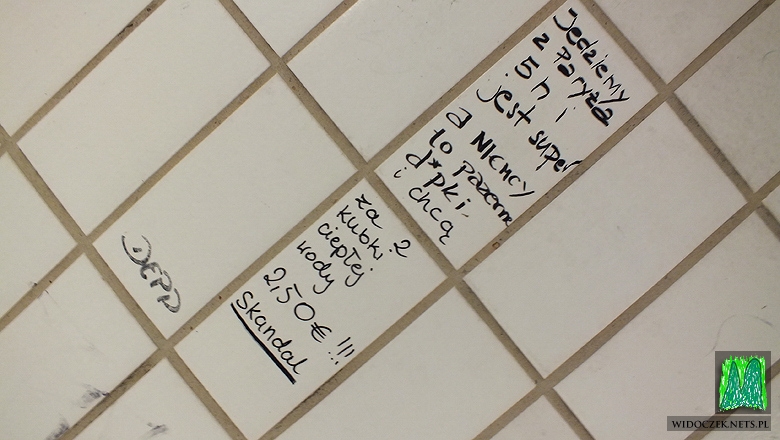 Jedziemy
z Paryża
5 h i
jest super
a NIEMCY
to pazerne
d*pki
i chcą
za 2
kubki
ciepłej
wody
2,50€ !!!
Skandal
DEPP
WIDOCZEK.NETS.PL